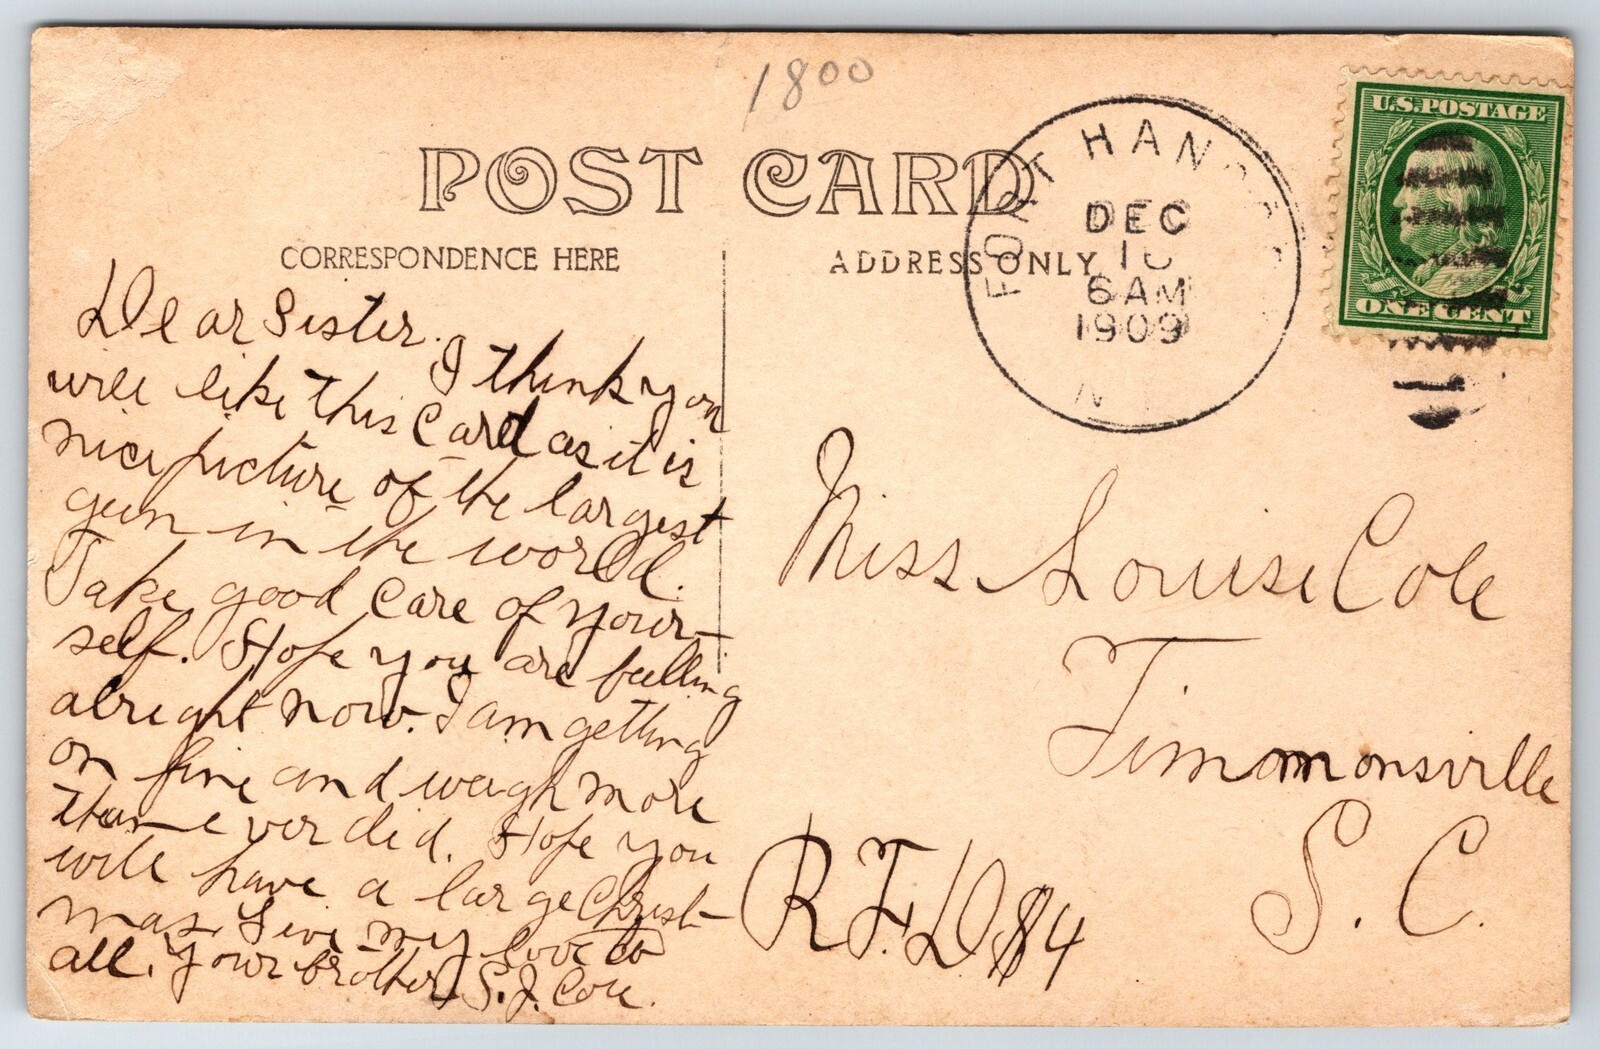 1800
POST CARD
CORRESPONDENCE HERE
ADDRESS ONLY
FORT HAN
DEC
6 AM
1909
N
U.S. POSTAGE
ONE CENT
Dear Sister.
I think you
will like this Card as it is
nice picture of the largest
gun in the world.
Take good care of your-
self. Hope you are feelling
alright now. I am getting
on fine and weigh more
than ever did. Hope you
will have a large Christ-
mas. Give my love to
all. Your brother, S.J. Cole.
Miss Louise Cole
Timmonsville
S. C.
R.F.D. #4